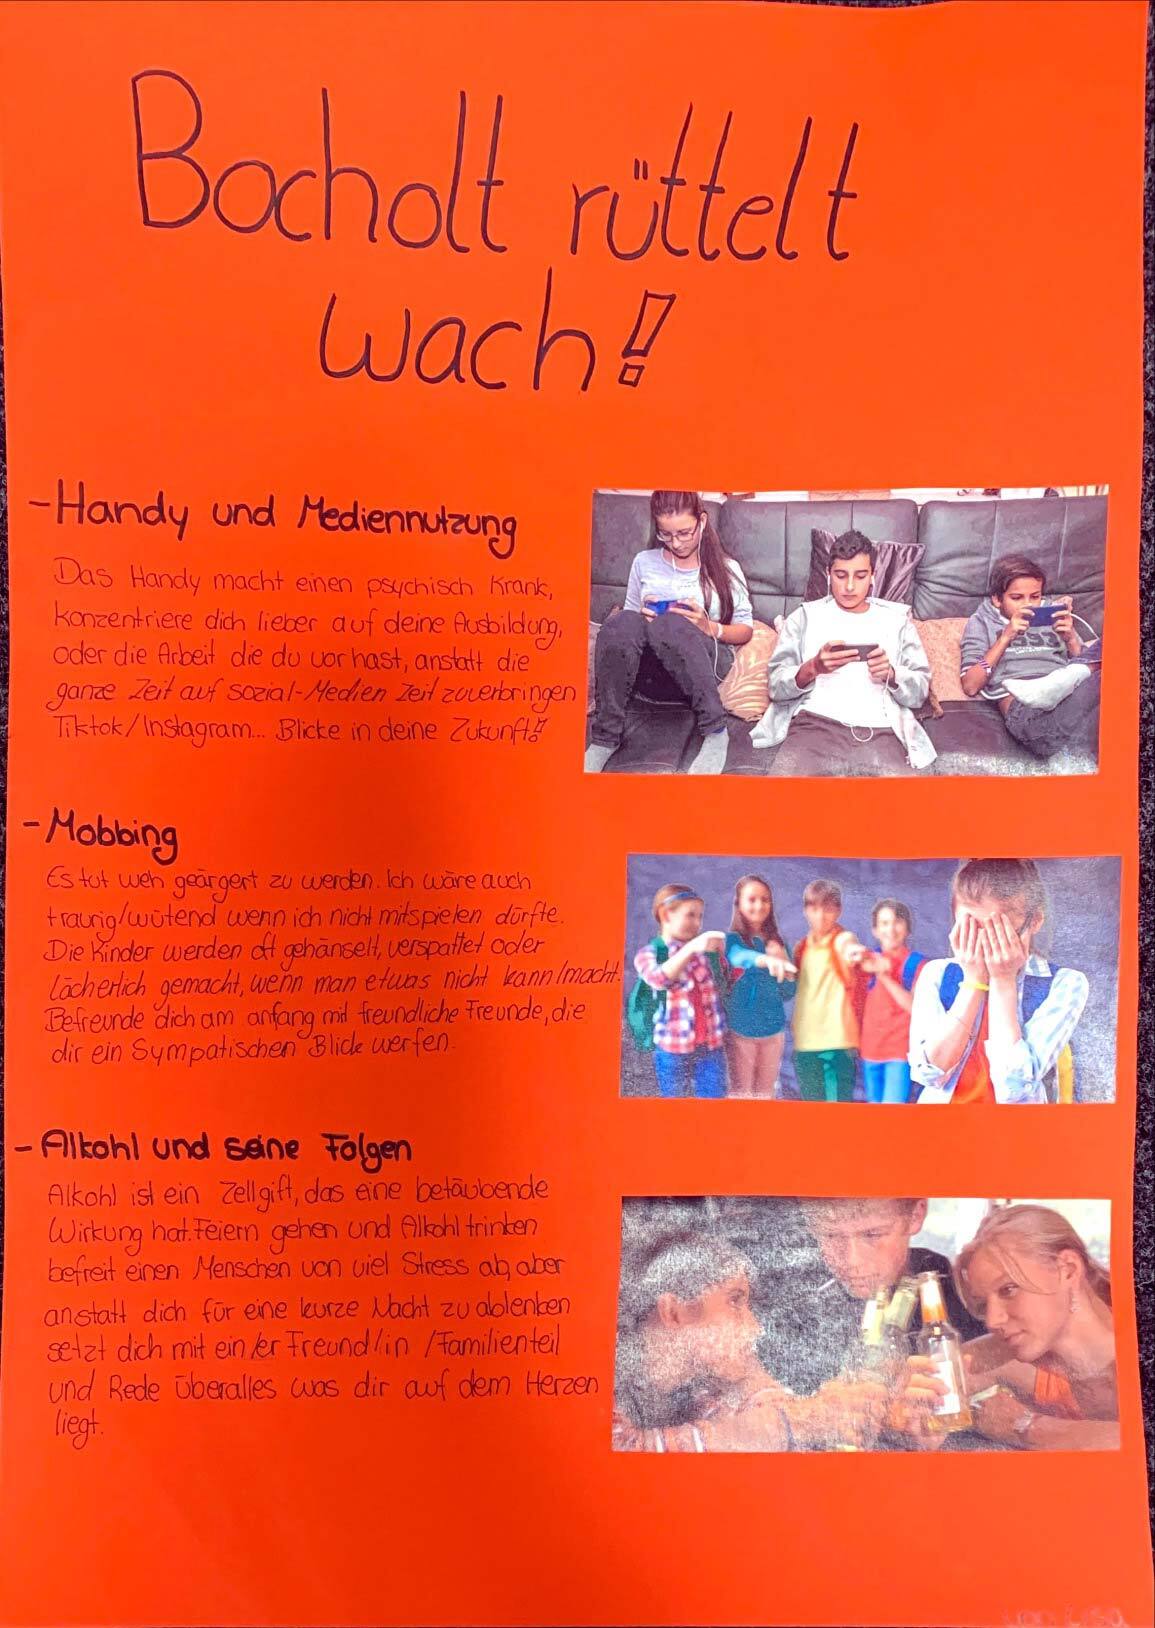 Bocholt rüttelt
wach!
- Handy und Mediennutzung
Das Handy macht einen psychisch Krank,
konzentriere dich lieber auf deine Ausbildung,
oder die Arbeit die du vor hast, anstatt die
ganze Zeit auf sozial-Medien Zeit zuverbringen
Tiktok/Instagram... Blicke in deine Zukunft!
- Mobbing
Es tut weh geärgert zu werden. Ich wäre auch
traurig/wütend wenn ich nicht mitspielen dürfte.
Die Kinder werden oft gehänselt, verspottet oder
lächerlich gemacht, wenn man etwas nicht kann/macht.
Befreunde dich am anfang mit freundliche Freunde, die
dir ein Sympatischen Blick werfen.
- Alkohl und seine Folgen
Alkohl ist ein Zellgift, das eine betäubende
Wirkung hat. Feiern gehen und Alkohl trinken
befreit einen Menschen von viel Stress ab, aber
anstatt dich für eine kurze Nacht zu ablenken
setzt dich mit ein/er Freund/in /Familienteil
und Rede überalles was dir auf dem Herzen
liegt.
von Lisa